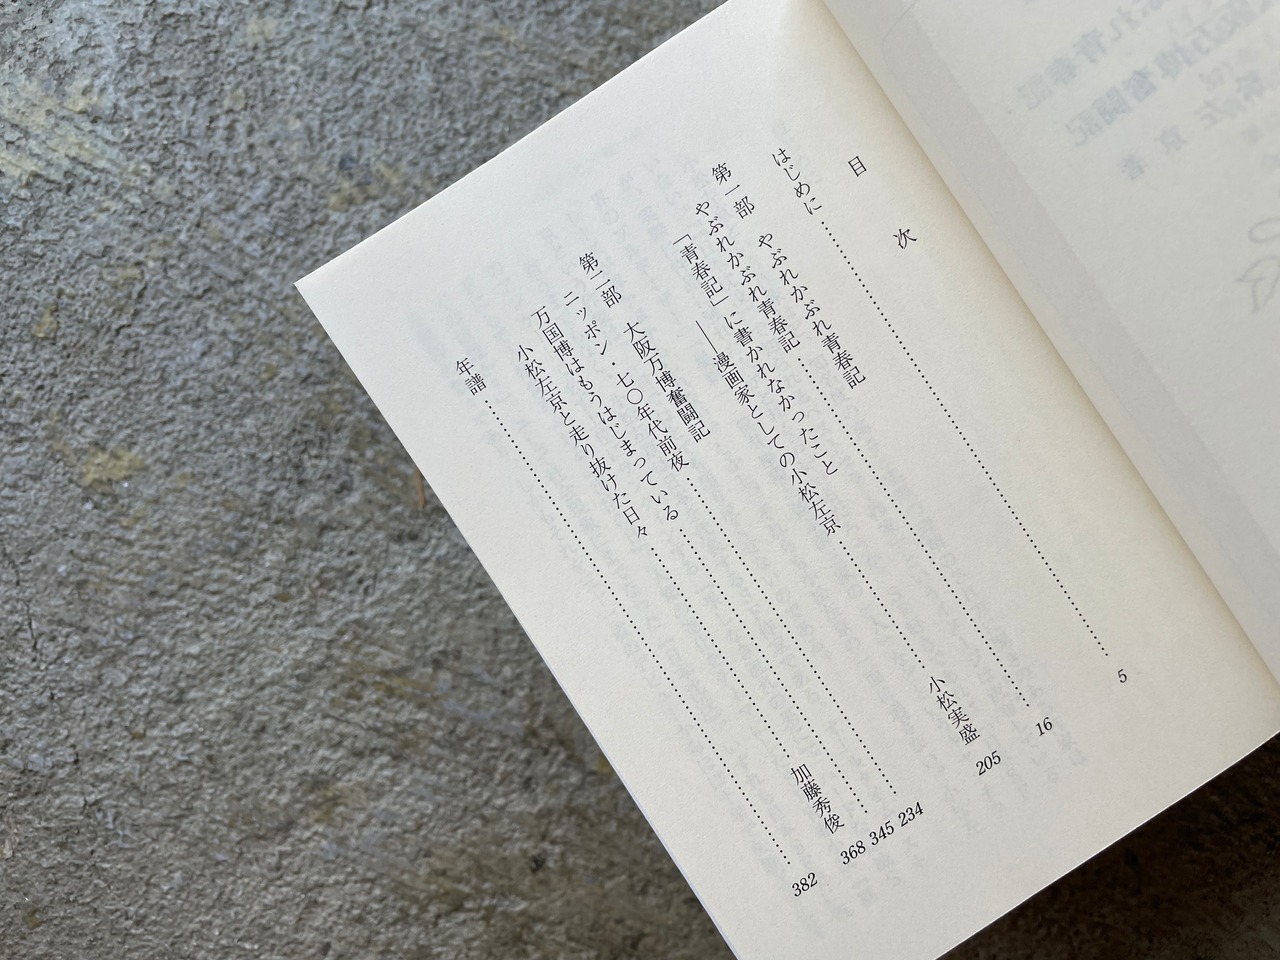 目次
はじめに……………………5
第一部　やぶれかぶれ青春記
やぶれかぶれ青春記……………………16
「青春記」に書かれなかったこと
――漫画家としての小松左京……………………小松実盛 205
第二部　大阪万博奮闘記
ニッポン・七〇年代前夜……………………234
万国博はもうはじまっている……………………345
小松左京と走り抜けた日々……………………加藤秀俊 368
年譜……………………382